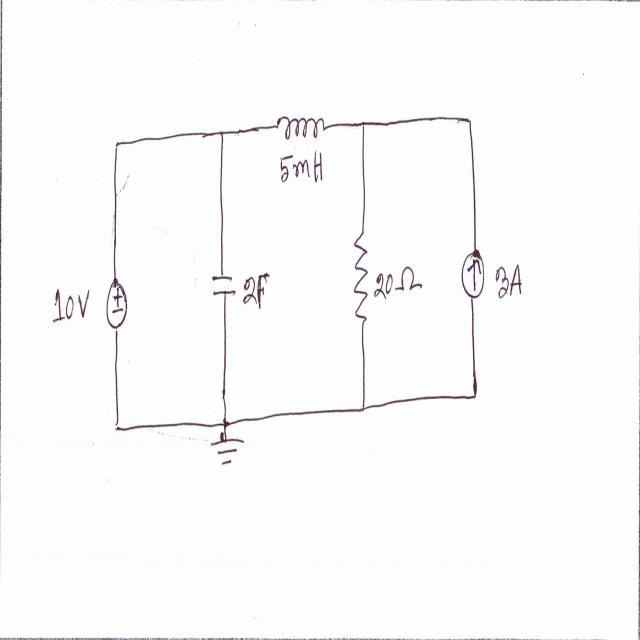 5mH
10V
2F
20Ω
3A